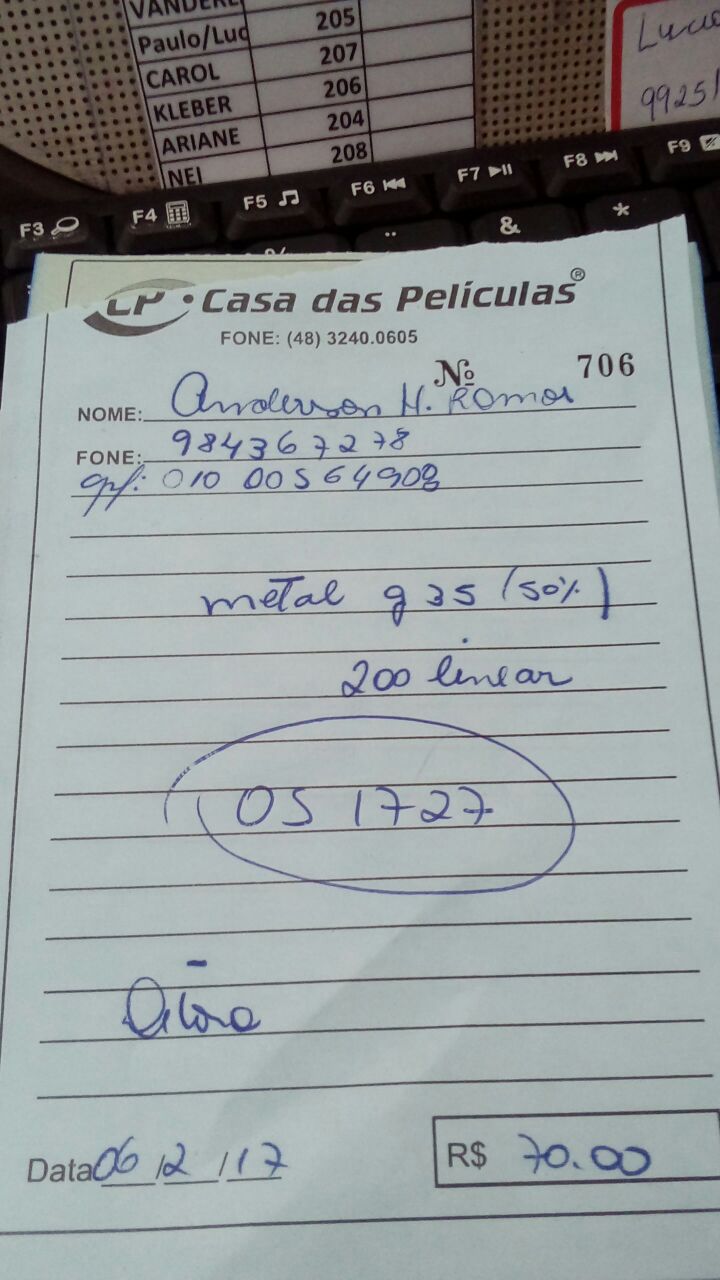 VANDERL
Paulo/Luc 205
CAROL 207
KLEBER 206
ARIANE 204
NEI 208
9925
F3 F4 F5 F6 F7 F8 F9
& *
LP Casa das Películas®
FONE: (48) 3240.0605
Nº 706
NOME: Anderson H. Ramos
FONE: 984367278
cpf: 010 005 64908
metal g 35 (50%)
200 linear
OS 1727
Data 06/2/17 R$ 70.00